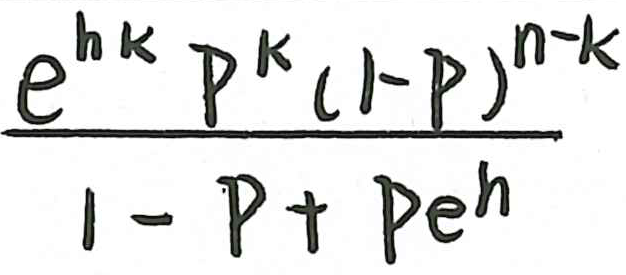 \frac{e^{hk} p^k (1-p)^{n-k}}{1-p+pe^h}